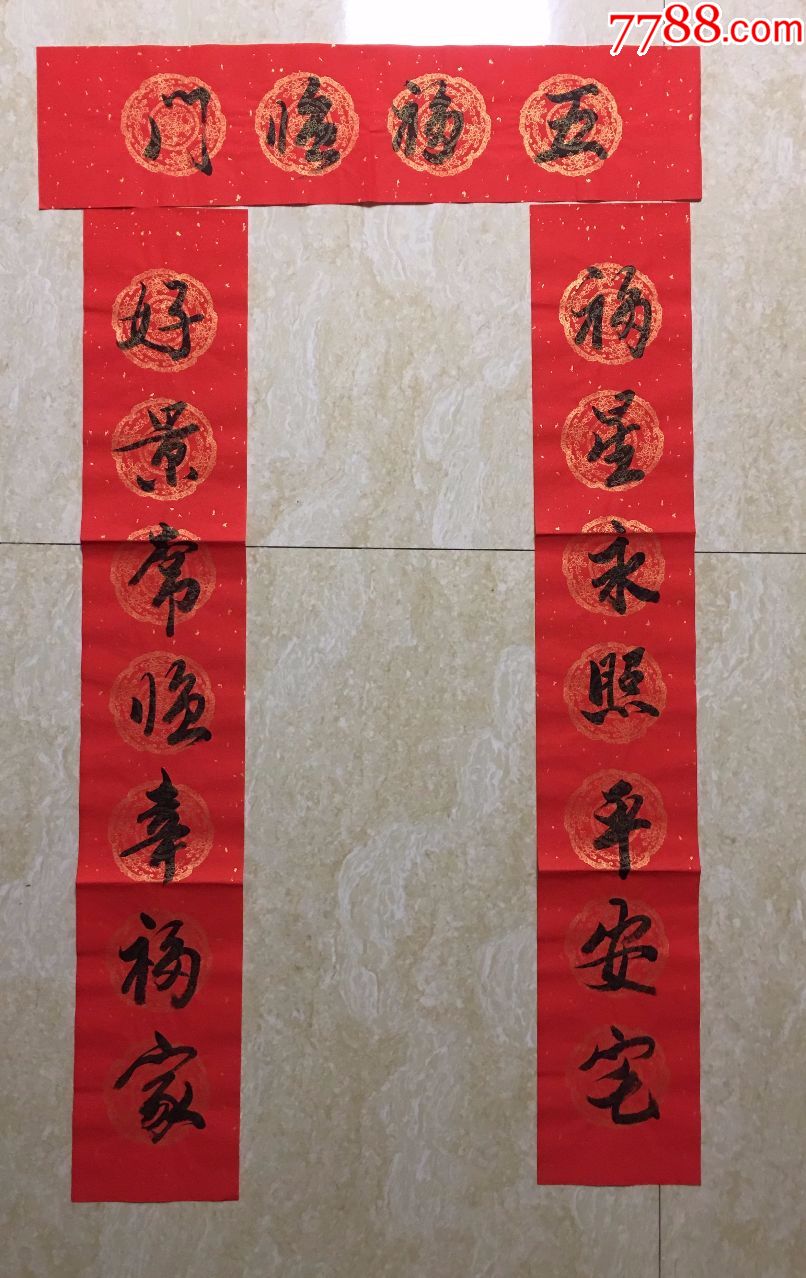 7788.com
五福临门
福星永照平安宅
好景常临幸福家